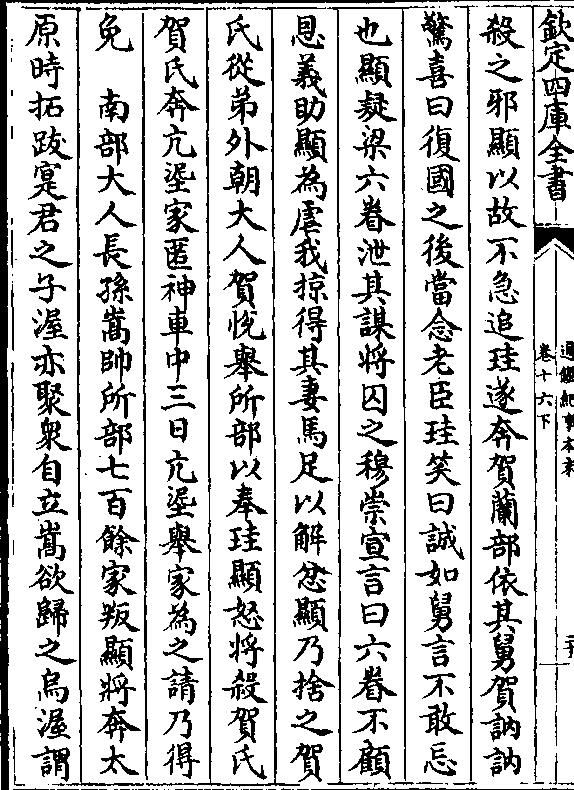 欽定四庫全書
通鑑紀事本末
卷十六下
殺之邪顯以故不急追珪遂奔賀蘭部依其舅賀訥訥
驚喜曰復國之後當念老臣珪笑曰誠如舅言不敢忘
也顯疑梁六眷泄其謀將囚之穆崇宣言曰六眷不顧
恩義助顯為虐我掠得其妻馬足以解忿顯乃捨之賀
氏從弟外朝大人賀悅舉所部以奉珪顯怒將殺賀氏
賀氏奔亢埿家匿神車中三日亢埿舉家為之請乃得
免　南部大人長孫嵩帥所部七百餘家叛顯將奔太
原時拓跋寔君之子渥亦聚衆自立嵩欲歸之烏渥謂